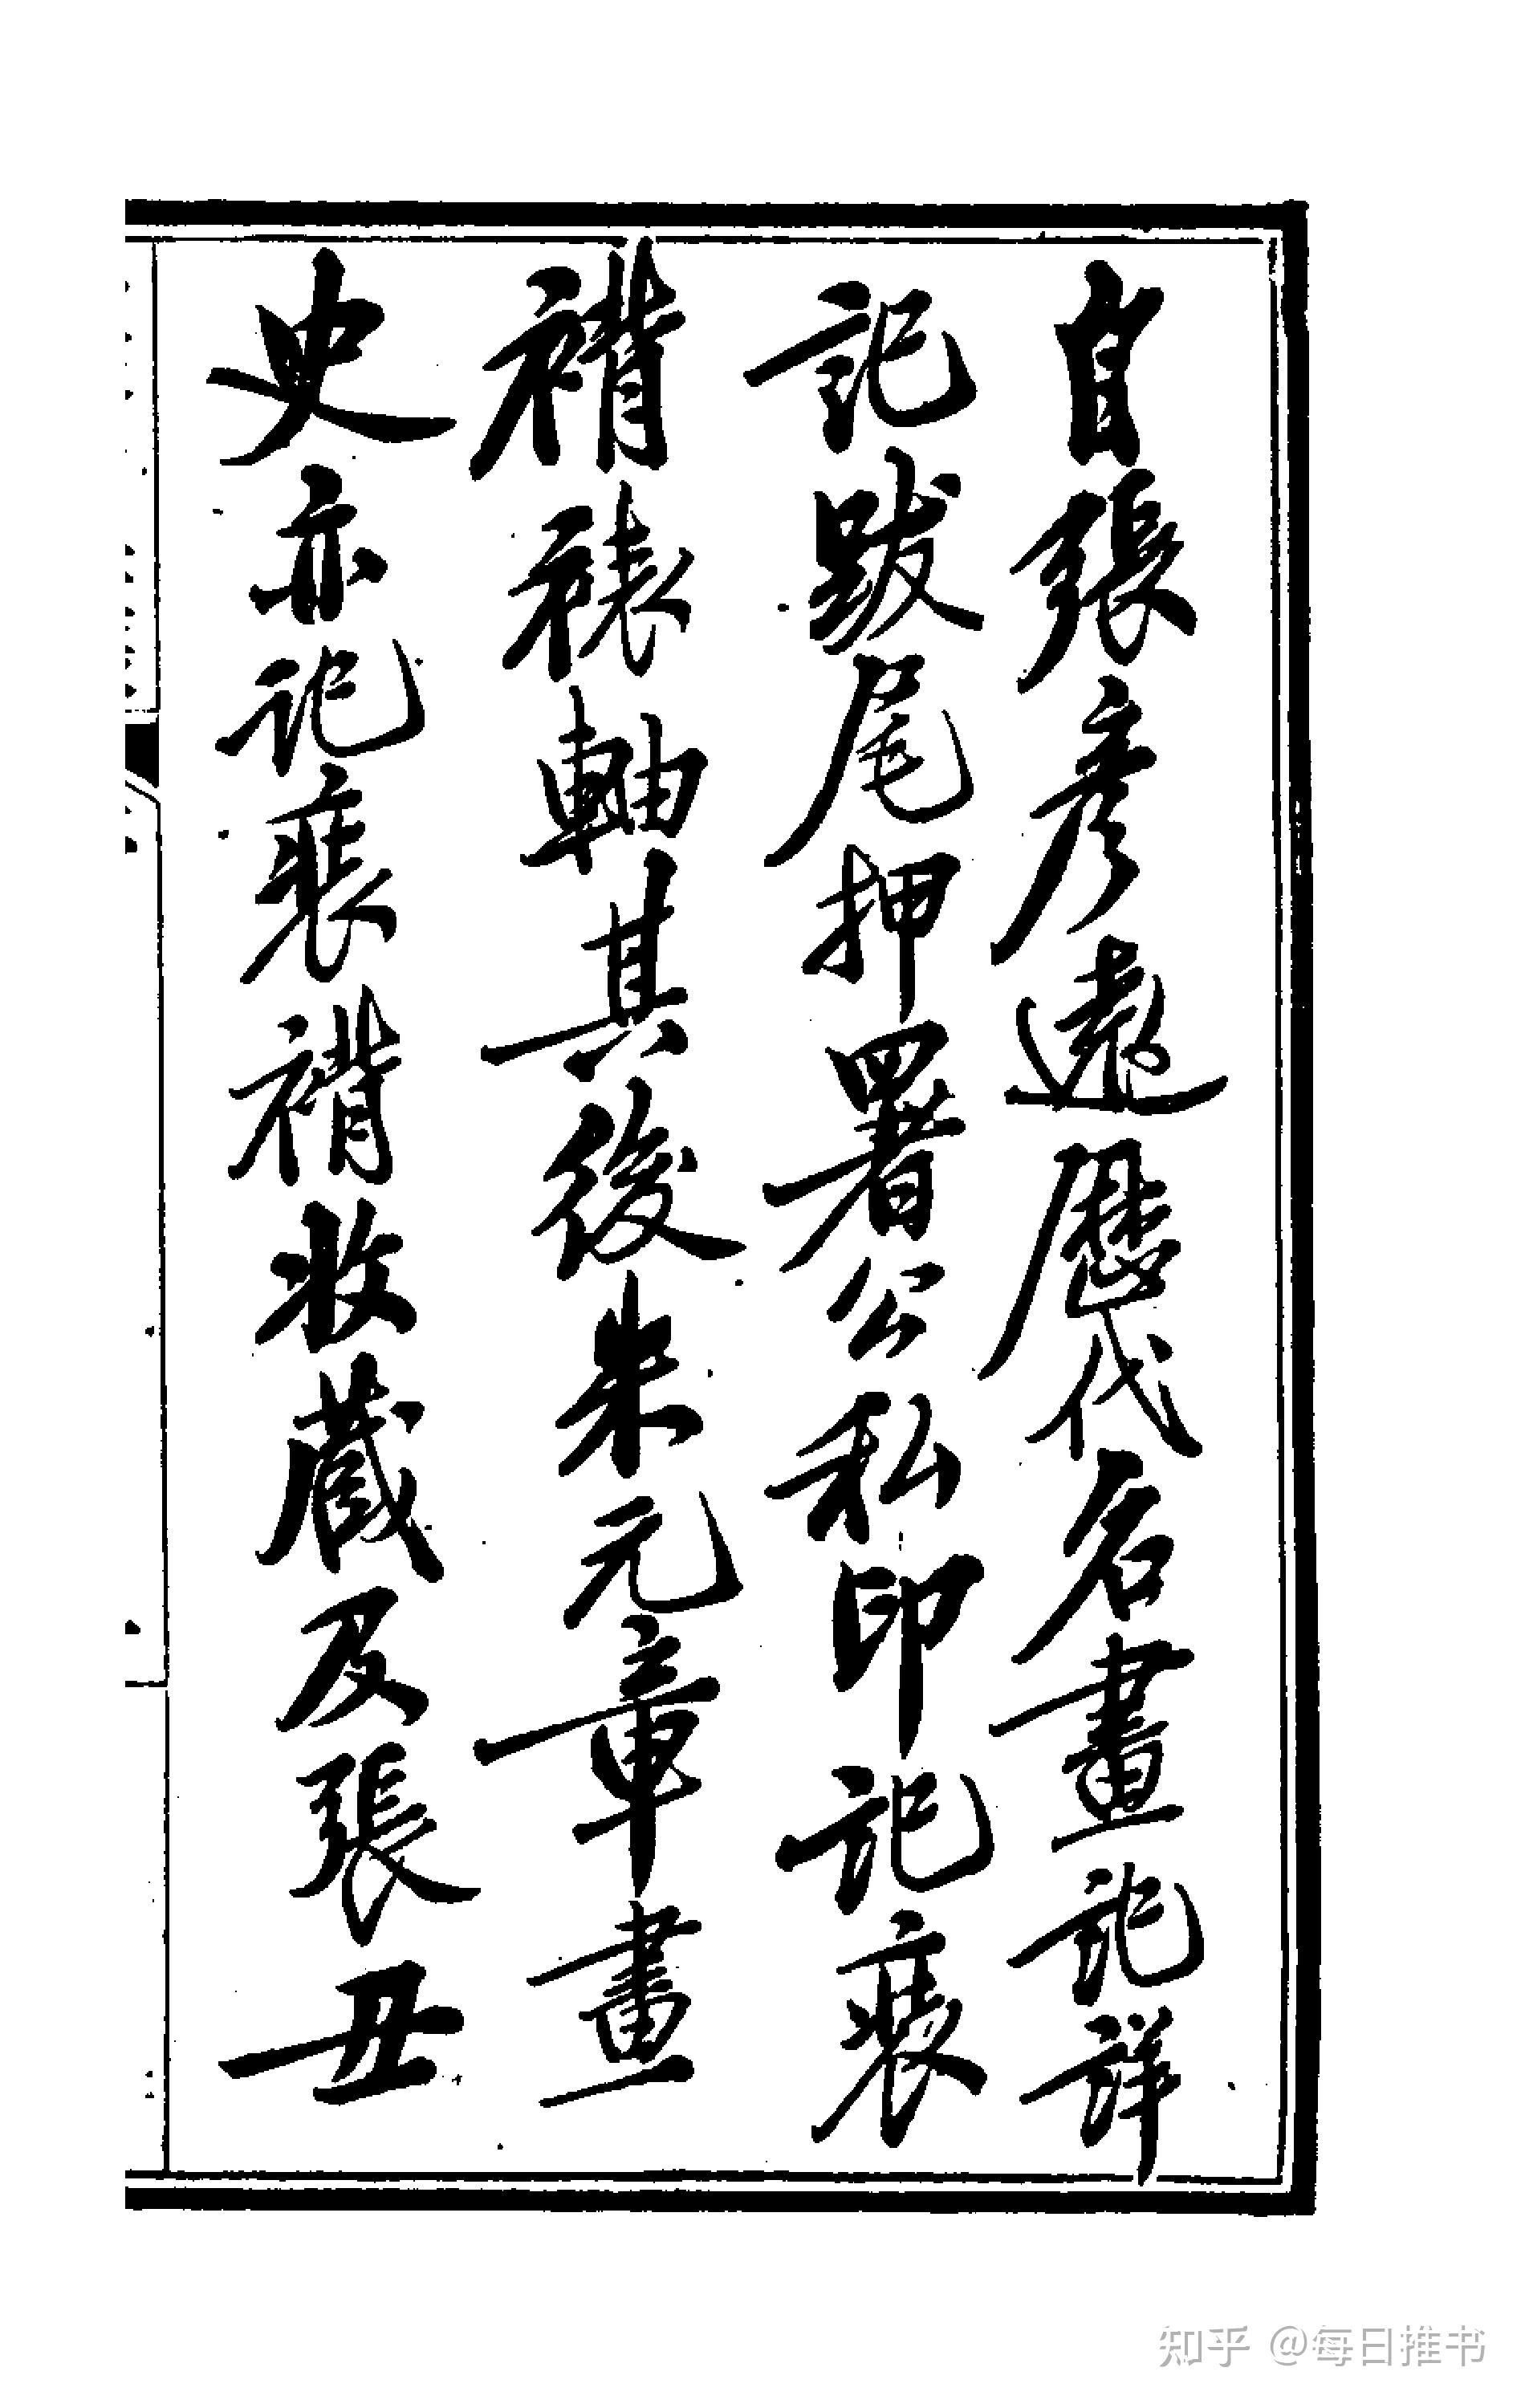 自張彥遠歷代名畫記詳
記跋尾押署公私印記裝
褙裱軸其後米元章畫
史亦記裝褙收藏及張丑
知乎 @每日推书